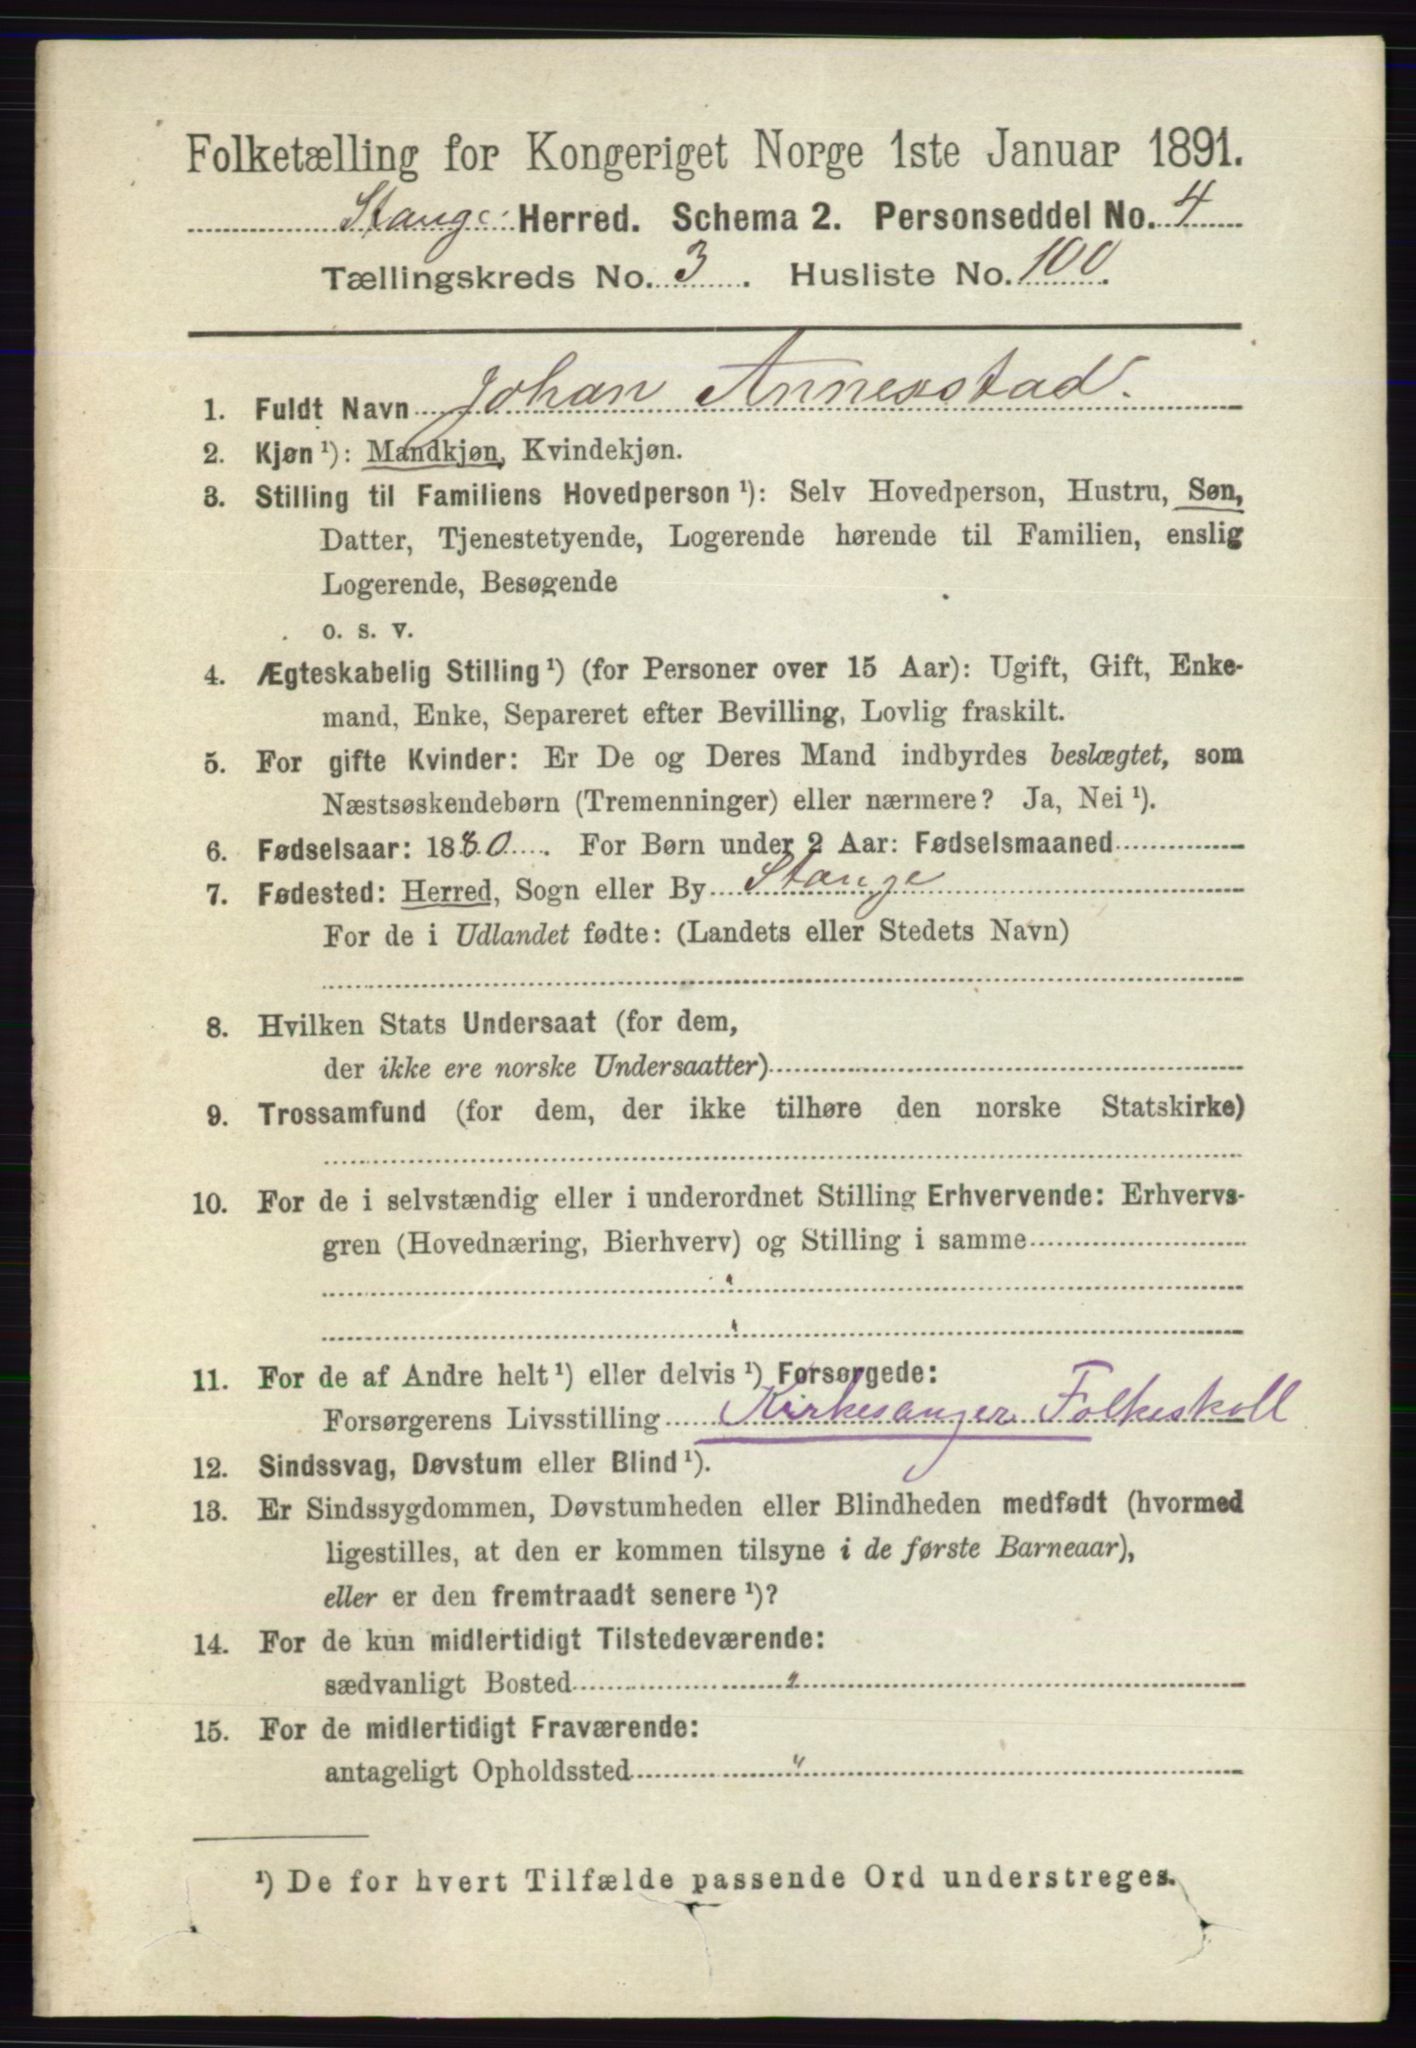 Folketælling for Kongeriget Norge 1ste Januar 1891.
Stange Herred. Schema 2. Personseddel No. 4
Tællingskreds No. 3. Husliste No. 100.
1. Fuldt Navn Johan Annexstad.
2. Kjøn ¹): Mandkjøn, Kvindekjøn.
3. Stilling til Familiens Hovedperson ¹): Selv Hovedperson, Hustru, Søn,
Datter, Tjenestetyende, Logerende hørende til Familien, enslig
Logerende, Besøgende
o. s. v.
4. Ægteskabelig Stilling ¹) (for Personer over 15 Aar): Ugift, Gift, Enke-
mand, Enke, Separeret efter Bevilling, Lovlig fraskilt.
5. For gifte Kvinder: Er De og Deres Mand indbyrdes beslægtet, som
Næstsøskendebørn (Tremenninger) eller nærmere? Ja, Nei ¹).
6. Fødselsaar: 1880. For Børn under 2 Aar: Fødselsmaaned
7. Fødested: Herred, Sogn eller By Stange
For de i Udlandet fødte: (Landets eller Stedets Navn)
8. Hvilken Stats Undersaat (for dem,
der ikke ere norske Undersaatter)
9. Trossamfund (for dem, der ikke tilhøre den norske Statskirke)
10. For de i selvstændig eller i underordnet Stilling Erhvervende: Erhvervs-
gren (Hovednæring, Bierhverv) og Stilling i samme
11. For de af Andre helt ¹) eller delvis ¹) Forsørgede:
Forsørgerens Livsstilling Kirkesanger Folkeskoll
12. Sindssvag, Døvstum eller Blind ¹).
13. Er Sindssygdommen, Døvstumheden eller Blindheden medfødt (hvormed
ligestilles, at den er kommen tilsyne i de første Barneaar),
eller er den fremtraadt senere ¹)?
14. For de kun midlertidigt Tilstedeværende:
sædvanligt Bosted "
15. For de midlertidigt Fraværende:
antageligt Opholdssted "
¹) De for hvert Tilfælde passende Ord understreges.